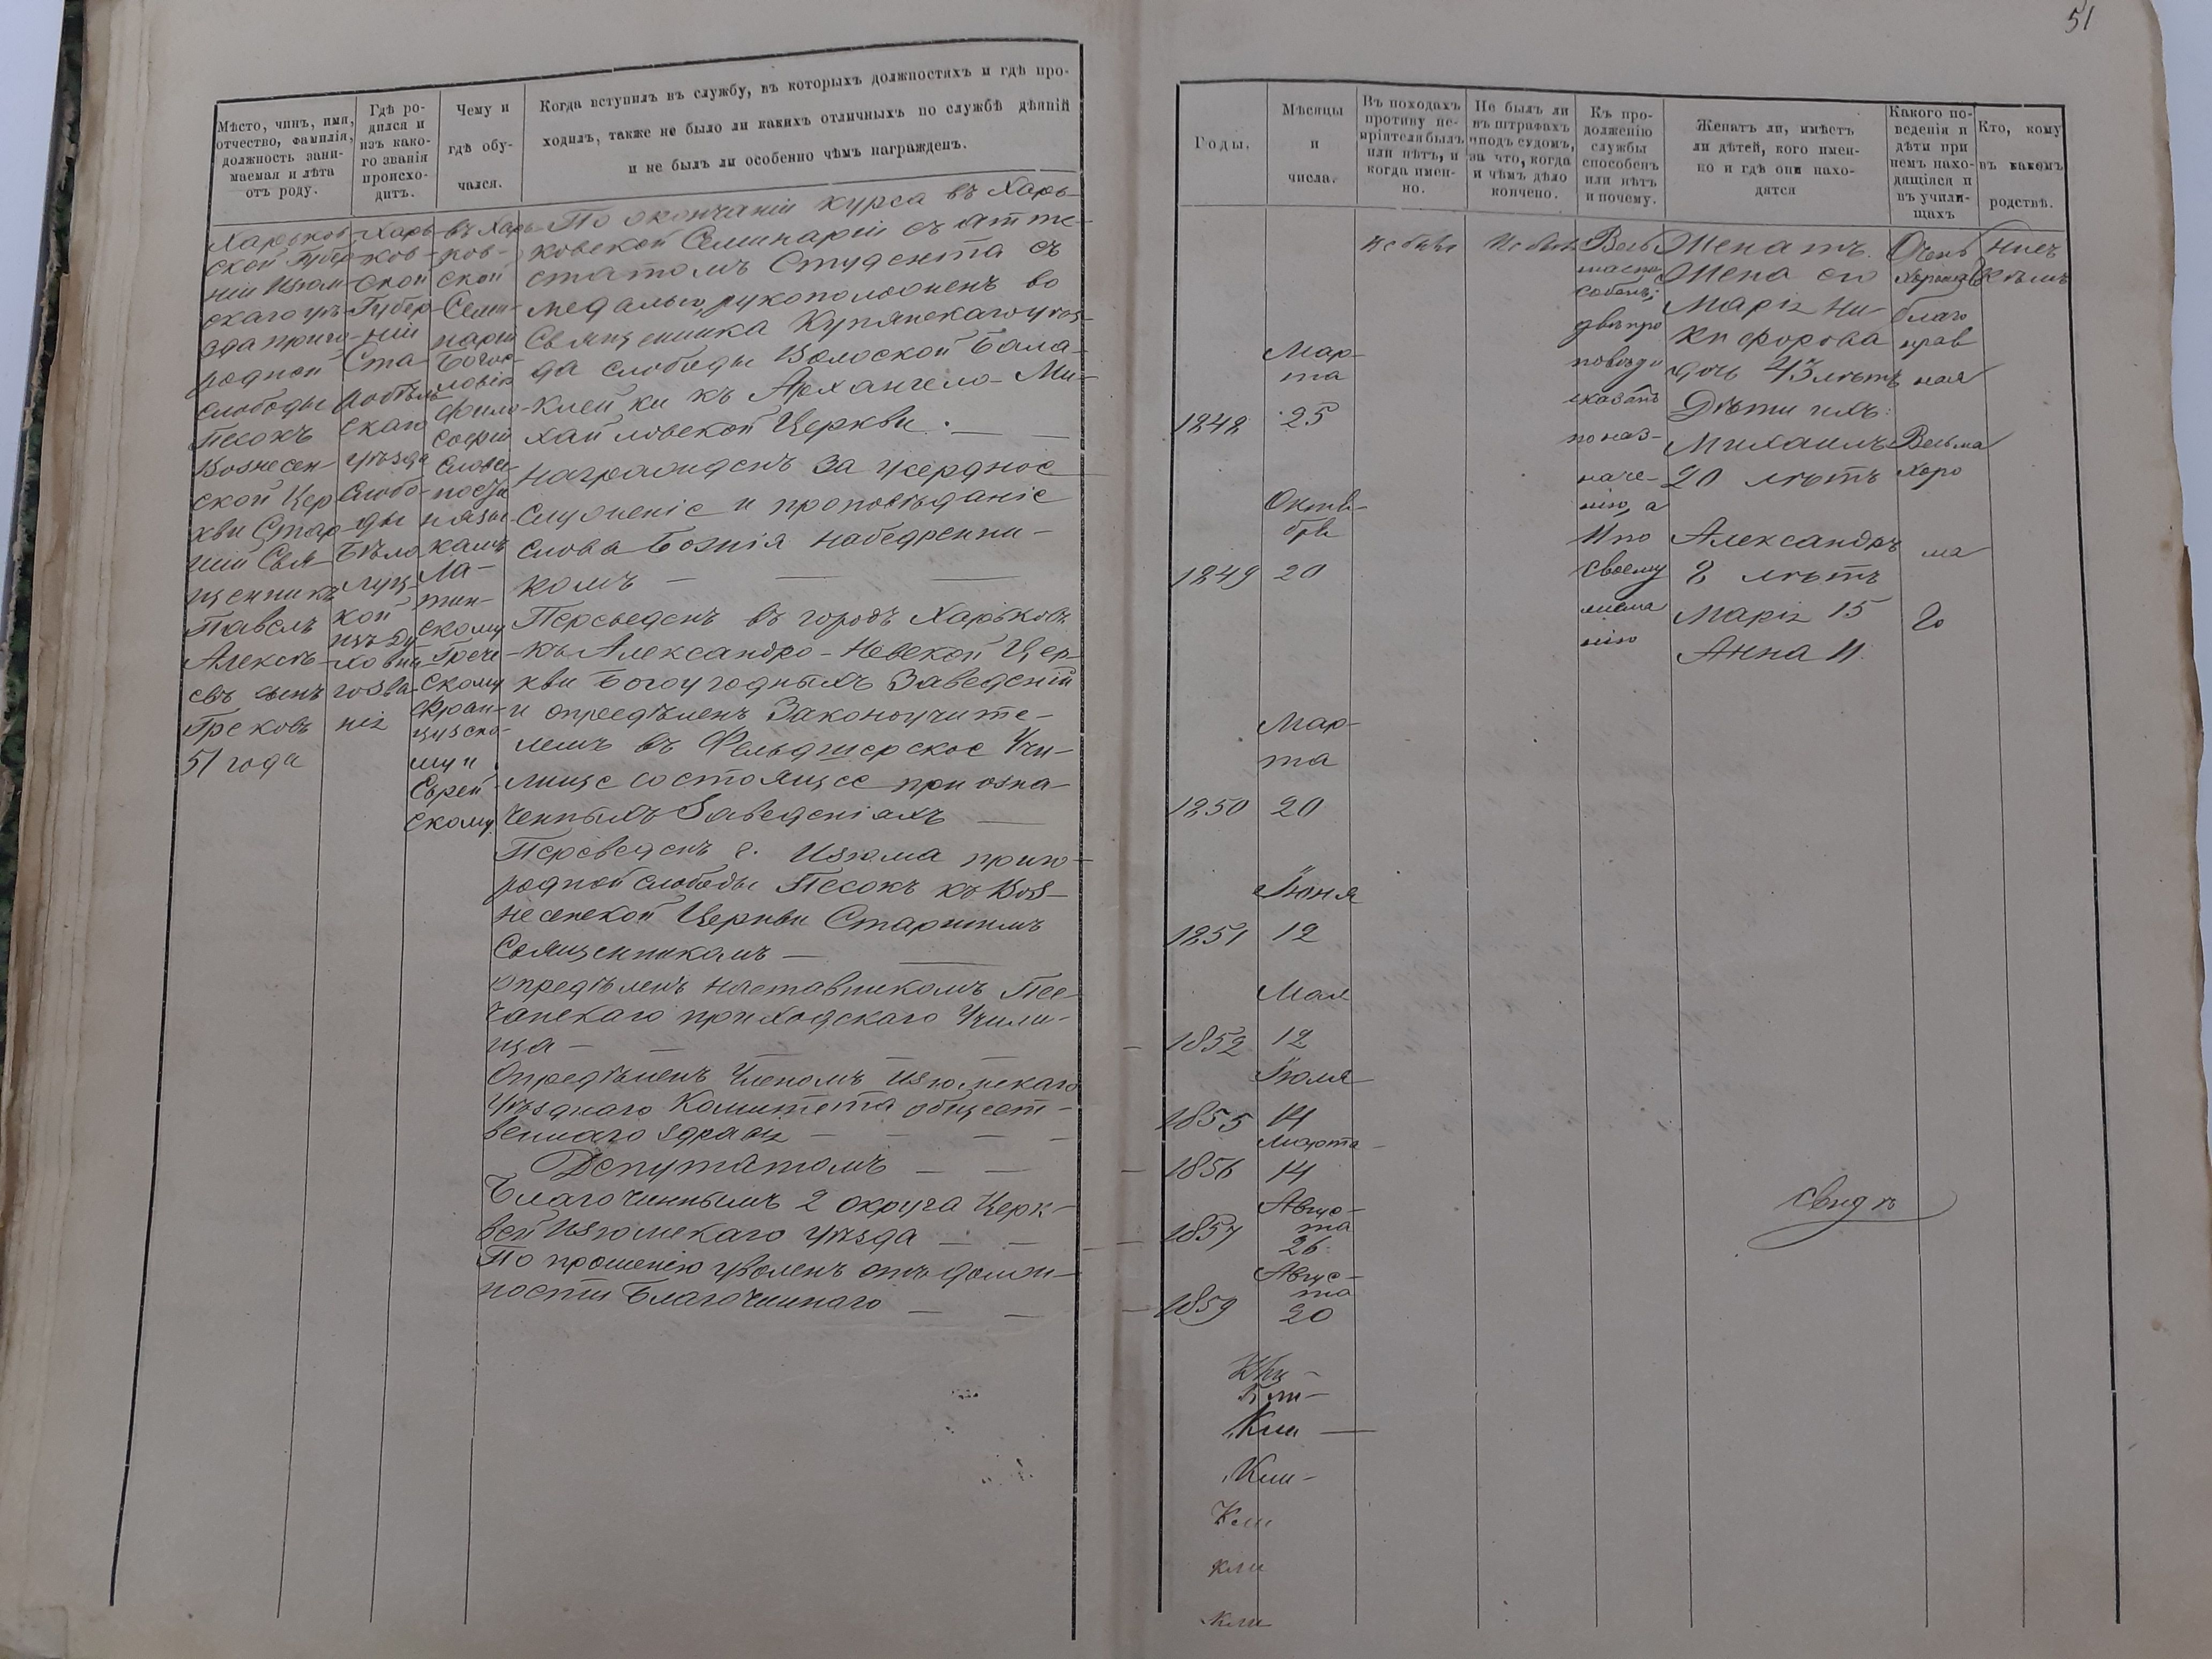 51
Мѣсто, чинъ, имя,
отчество, фамилія,
должность зани-
маемая и лѣта
отъ роду.
Гдѣ ро-
дился и
изъ како-
го званія
происхо-
дитъ.
Чему и
гдѣ обу-
чался.
Когда вступилъ въ службу, въ которыхъ должностяхъ и гдѣ про-
ходилъ, также не было ли какихъ отличныхъ по службѣ дѣяній
и не былъ ли особенно чѣмъ награжденъ.
Харьков-
ской Губер
ніи Изюм-
скаго уѣ-
зда приго-
родной
слободы
Песокъ
Вознесен-
ской Цер
кви Стар
шій Свя-
щенникъ
Павелъ
Алексѣ-
евъ сынъ
Грековъ
51 года
Харь-
ков-
ской
Губер-
ніи
Ста-
робѣль
скаго
уѣзда
Слобо-
ды
Бѣло
луц-
кой
изъ Ду
ховна
го зва-
нія
въ Харь-
ков-
ской
Семи-
наріи
Богос-
ловію
Фило-
софіи
Слове-
ности
и язы-
камъ
Ла-
тин-
скому
Грече-
скому
Фран-
цузско-
му и
Еврей-
скому
По окончаніи курса въ Харь-
ковской Семинаріи съ атте-
статомъ Студента съ
медалью, рукоположенъ во
Священника Купянскагоуѣз-
да слободы Волоской Бала-
клейки къ Архангело-Ми-
хайловской Церкви.
Награжденъ за усердное
Служеніе и проповѣданіе
слова Божія набедренни-
комъ
Переведенъ въ городъ Харьковъ
къ Александро-Невской Цер-
кви Богоугодныхъ Заведеній
и опредѣленъ Законоучите-
лемъ въ Фельдшерское Учи-
лище состоящее при озна-
ченныхъ Заведеніяхъ
Переведенъ г. Изюма приго-
родной слободы Песокъ къ Воз-
несенской Церкви Старшимъ
Священникамъ
опредѣленъ наставникомъ Пес-
чанскаго приходскаго Учили-
ща
Опредѣленъ Членомъ Изюмскаго
Уѣзднаго Комитета общест-
веннаго здравія
Депутатомъ
Благочиннымъ 2 округа Церк-
вей Изюмскаго уѣзда
По прошенію уволенъ отъ долж-
ности Благочиннаго
Годы.
Мѣсяцы
и
числа.
Въ походахъ
противу не-
пріятеля былъ
или нѣтъ, и
когда имен-
но.
Не былъ ли
въ штрафахъ
подъ судомъ,
за что, когда
и чѣмъ дѣло
кончено.
Къ про-
долженію
службы
способенъ
или нѣтъ
и почему.
Женатъ ли, имѣетъ
ли дѣтей, кого имен-
но и гдѣ они нахо-
дятся
Какого по-
веденія и
дѣти при
немъ нахо-
дящіяся и
въ учили-
щахъ
Кто, кому
въ какомъ
родствѣ.
Мар-
та
1848 25
Октя-
бря
1849 20
Мар-
та
1850 20
Іюня
1851 12
Мая
1852 12
Іюля
1855 14
Марта
1856 14
Авгус-
та
1857 26
Авгус-
та
1859 20
Не былъ
Не былъ
Весь
собенъ;
двѣ про
повѣди
сказатъ
по наз-
наче-
нію, а
11 по
своему
жела
нію
Женатъ.
Жена его
Марія Ни-
кифорова
дочь 43 лѣтъ
Дѣти ихъ:
Михаилъ
20 лѣтъ
Александръ
8 лѣтъ
Марія 15
Анна 11.
Очень
хороша
благо
нрав
ная
Весьма
хоро
ша
Ни съ
кѣмъ
свидѣ
Кли
Кли
Кли
Кли
Кли